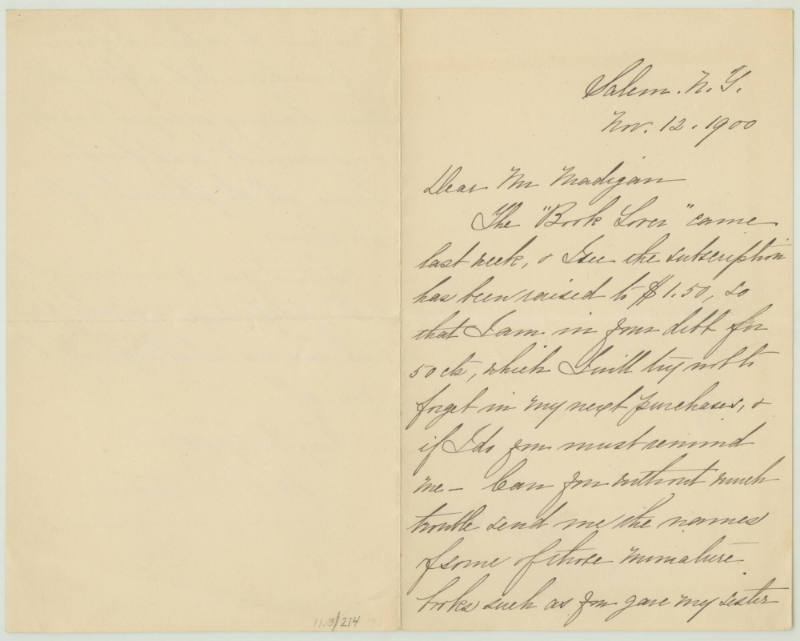 Salem. N. Y.
Nov. 12. 1900
Dear Mr Madigan
The "Book Lover" came
last week, & I see the subscription
has been raised to $1.50, so
that I am in your debt for
50 cts, which I will try not to
forget in my next purchases, &
if I do you must remind
me – Can you without much
trouble send me the names
of some of those miniature
books such as you gave my sister
11.13/214